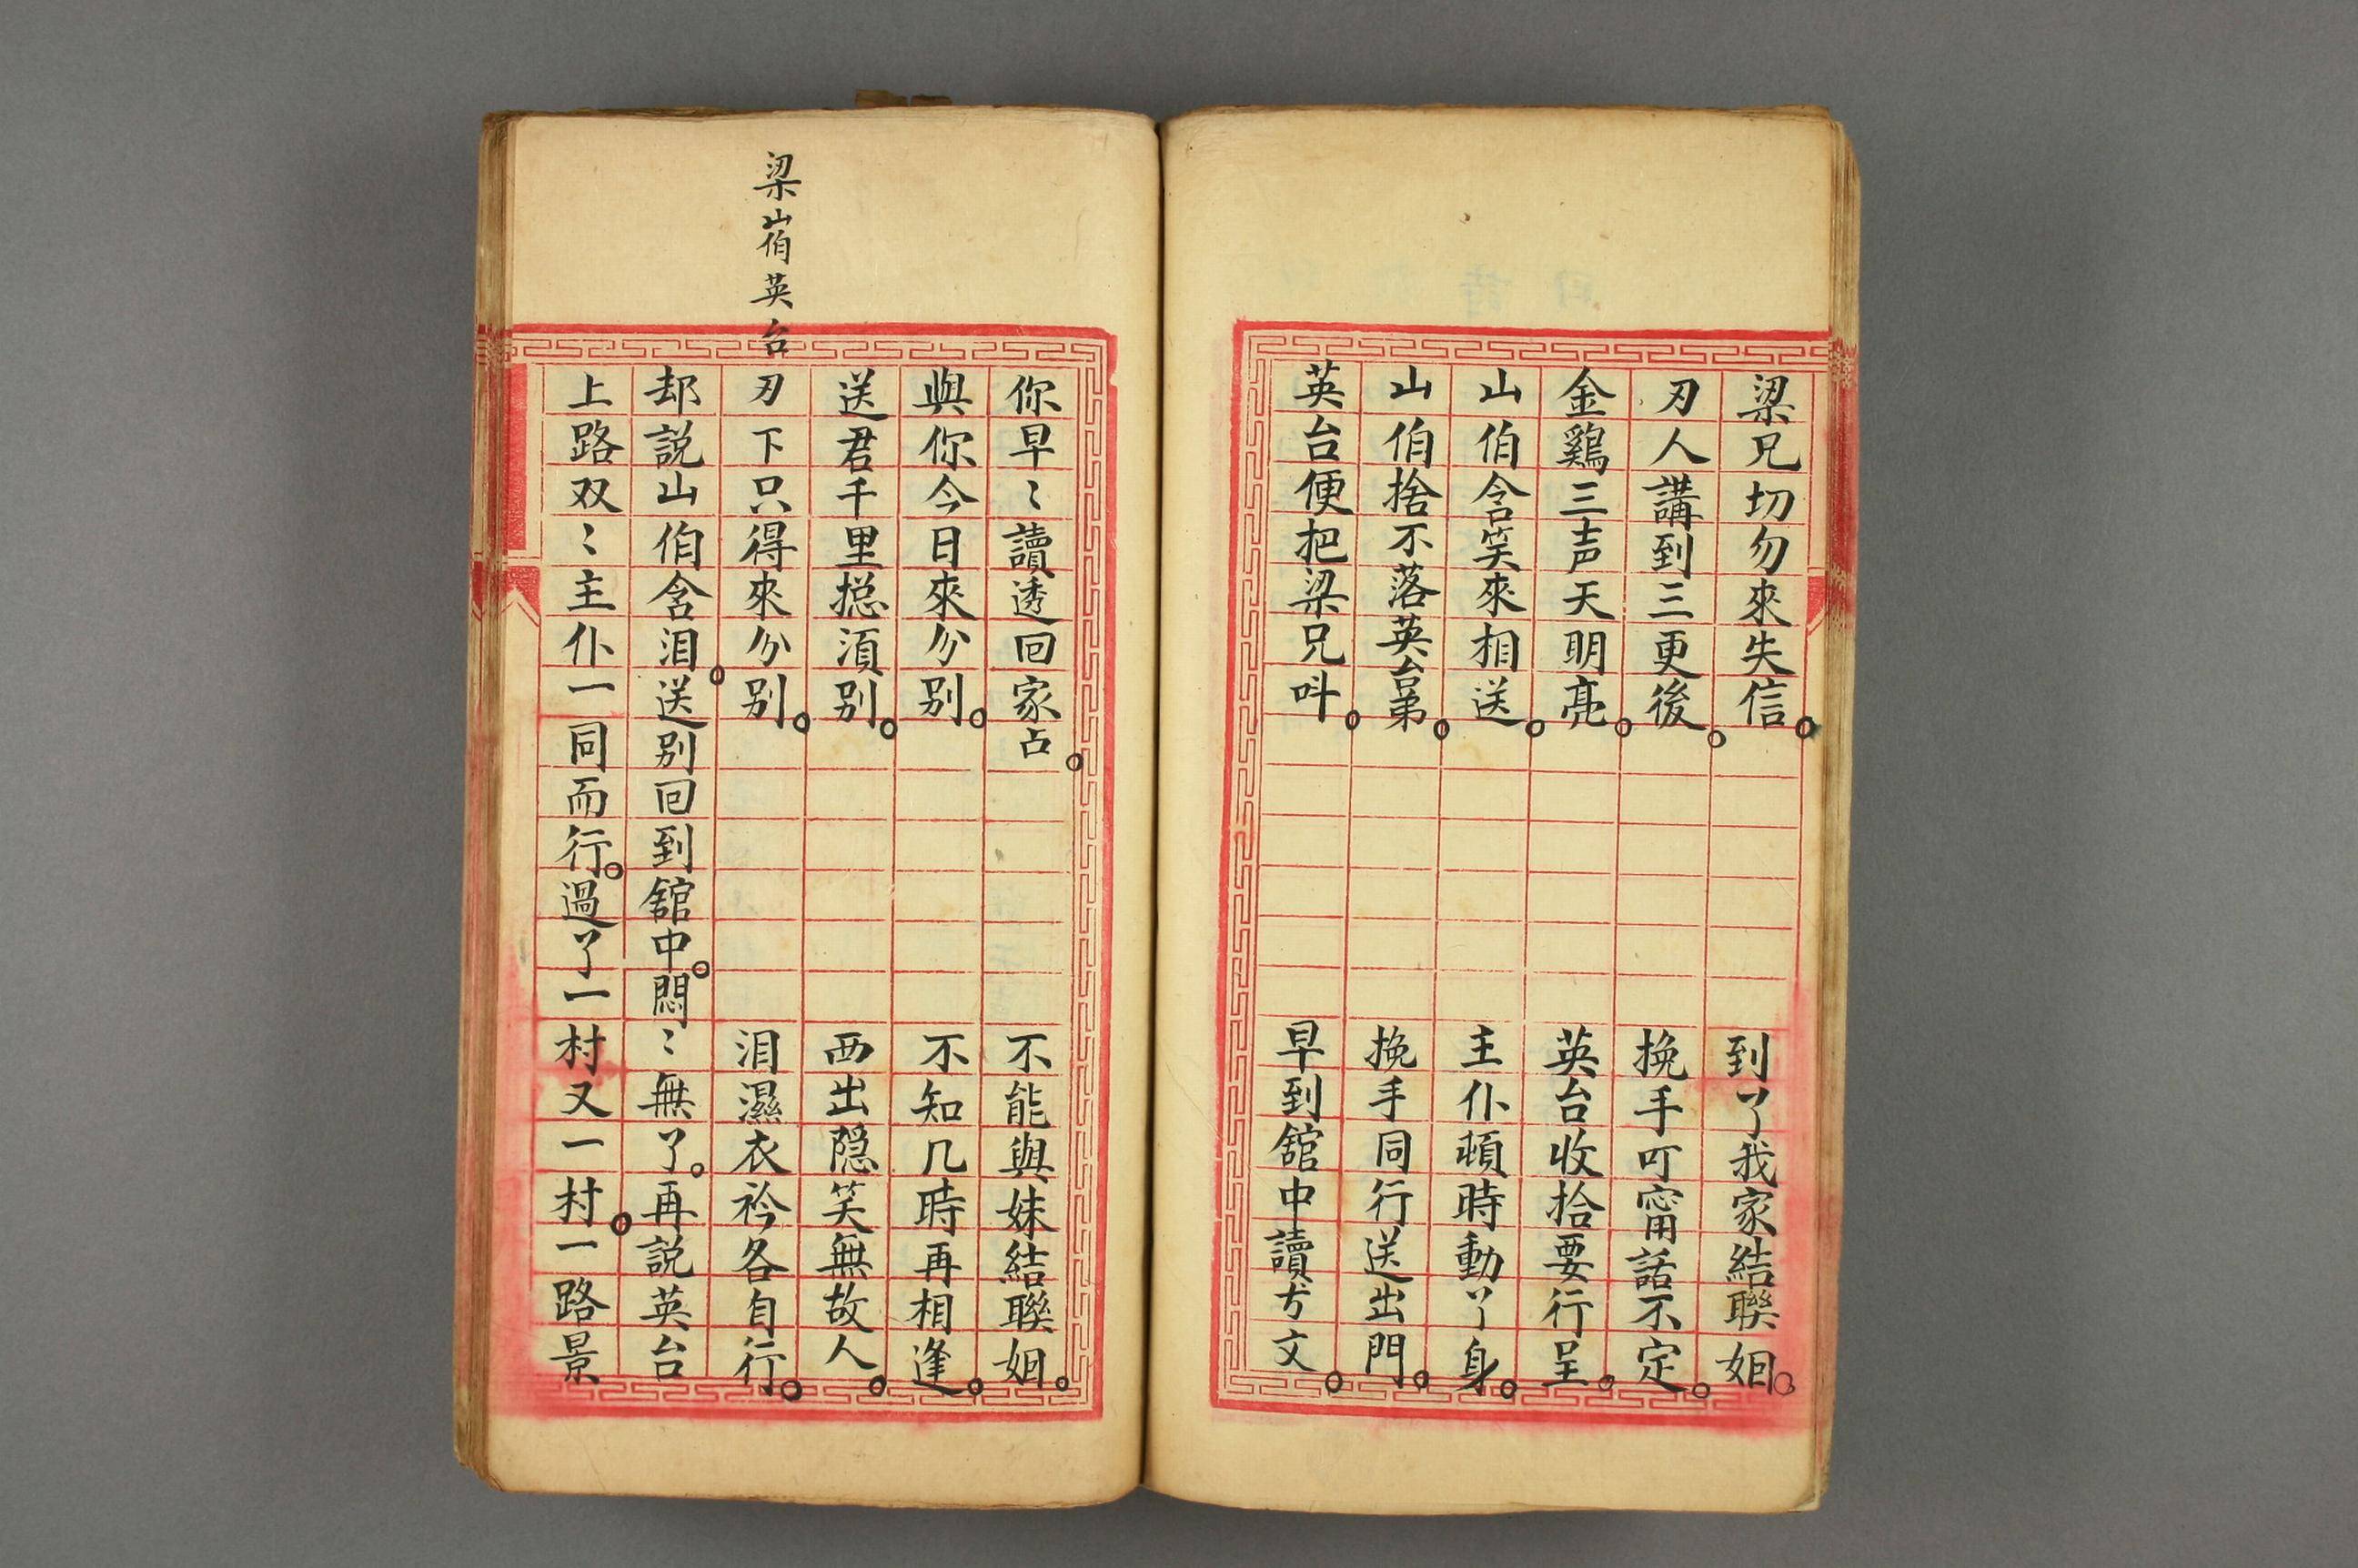 梁兄切勿來失信。到了我家結聯姻。
刃人講到三更後。挽手叮寗話不定。
金鷄三声天明亮。英台收拾要行呈。
山伯含笑來相送。主仆頓時動了身。
山伯捨不落英台弟。挽手同行送出門。
英台便把梁兄呌。早到舘中讀㐧文。
你早〻讀透回家占。不能與妹結聯姻。
與你今日來分別。不知几時再相逢。
送君千里揔須别。西出隐笑無故人。
刃下只得來分别。泪濕衣衿各自行。
却説山伯含泪。送别回到舘中。悶〻無了。再説英台
上路双〻主仆一同而行。過了一村又一村。一路景
梁山伯英台